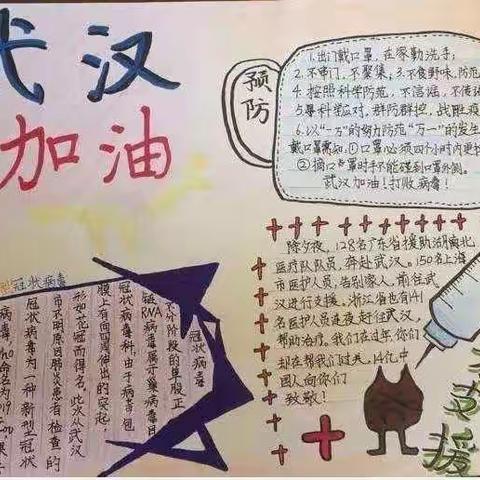 武汉
加油
预防
1.出门戴口罩,在家勤洗手;
2.不串门,不聚集,3.不食野味,防范
4.按照科学防范,不信谣,不传
5.尊科学应对,群防群控,战胜疫
6.以"一万"的努力防范"万一"的发生
戴口罩需知,①口罩必须四个小时内更
②摘口罩时手不能碰到口罩外侧。
武汉加油!打败病毒!
除夕夜,128名广东省援助湖北
医疗队队员,奔赴武汉。150名上海
市医护人员,告别家人,前往武
汉进行支援。浙江省也有141
名医护人员连夜赶往武汉,
帮助治疗。我们在过年,你们
却在帮我们过关,14亿中
国人向你们
致敬!
冠状病毒
冠状病毒
不分阶段的单股正
链RNA病毒属于巢病毒目
冠状病毒科,由于病毒包
膜上有向四周伸出的突起
形如花冠而得名,此次从武汉
市不明原因肺炎患者检查的
冠状病毒为一种新型冠状
病毒,Who命名为
支援